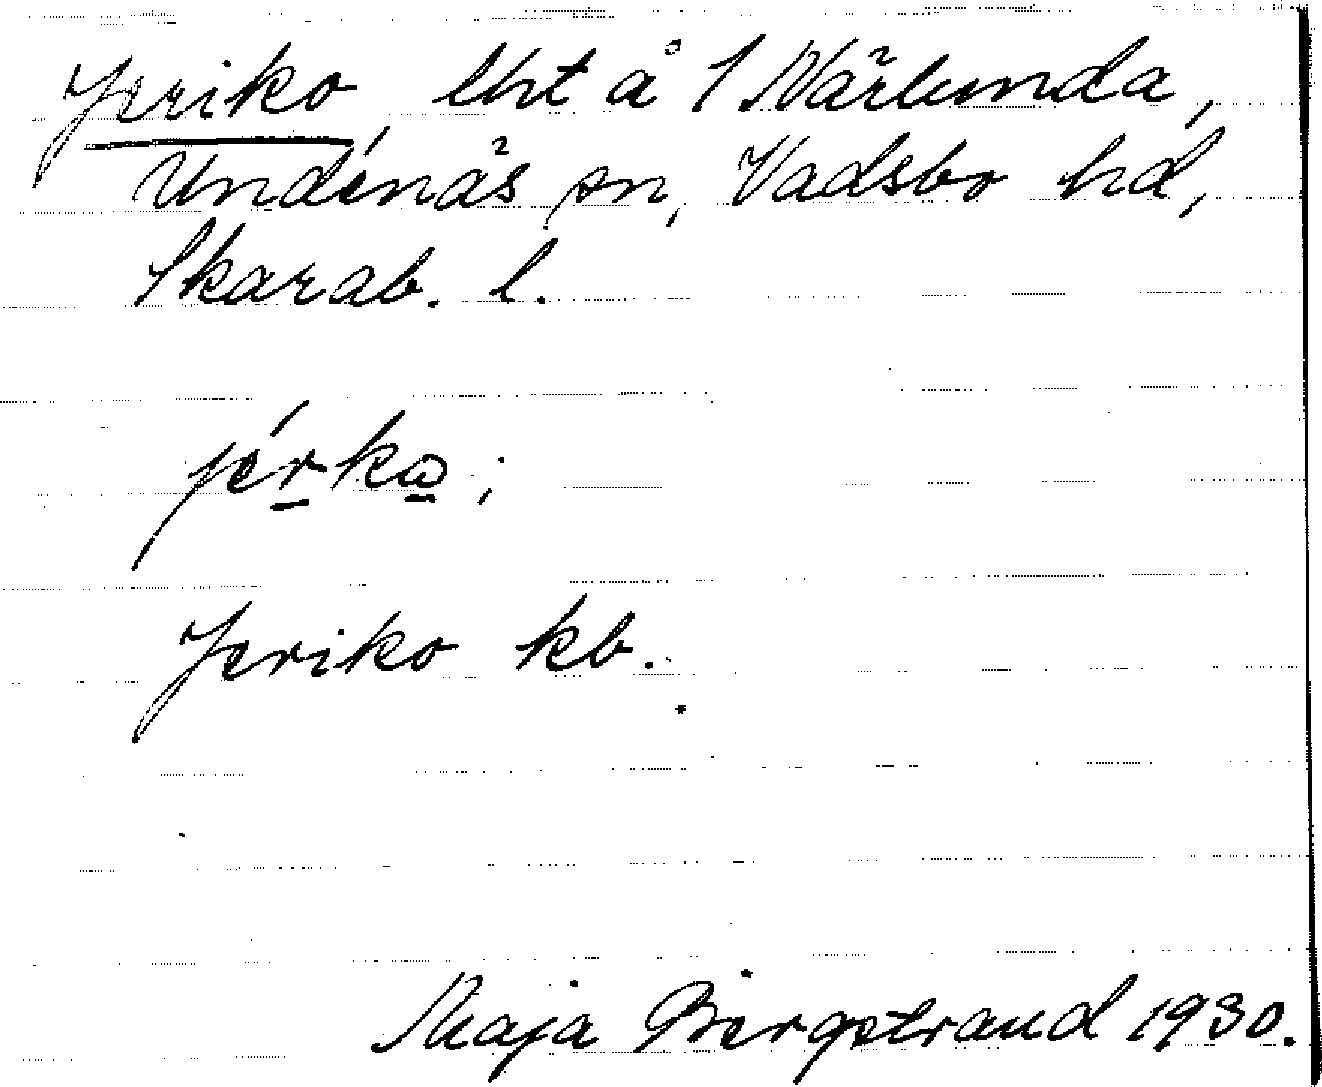 Jeriko, lht å 1 Närlunda,
Undenäs sn, Vadsbo hd,
Skarab. l.
jérko;
Jeriko kb.
Maja Bergstrand 1930.